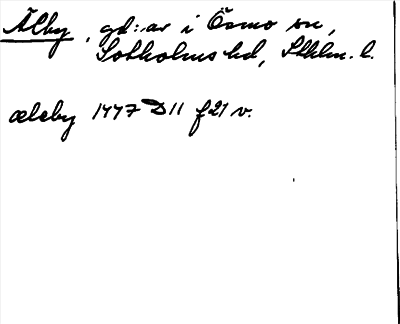 Älby, gd:ar i Ösmo sn,
Sotholms hd, Sthlm. l.
æleby 1447 D11 f21 v.